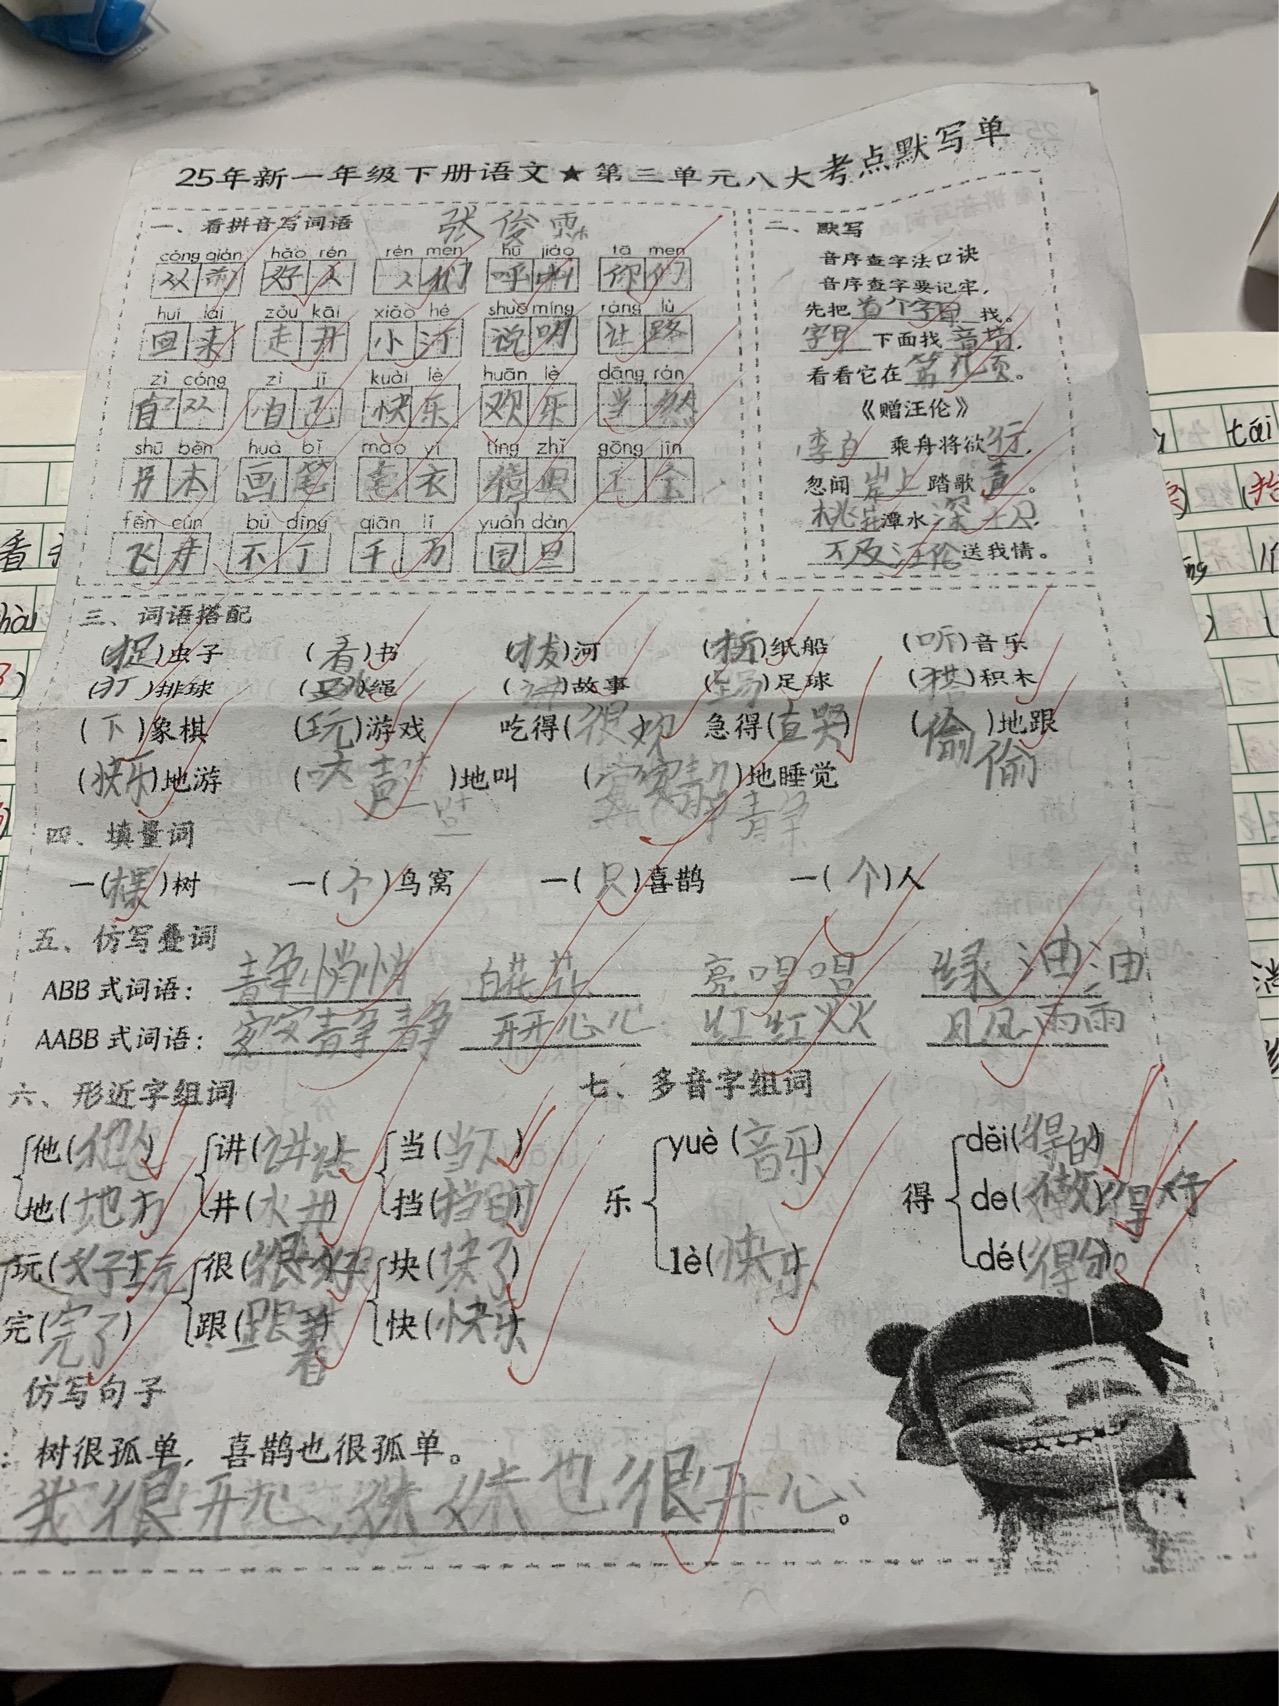 25年新一年级下册语文★第三单元八大考点默写单
一、看拼音写词语 张俊
cóng qián hǎo rén rén men hū jiào tā men
从前 好人 人们 呼叫 你们
huí lái zǒu kāi xiǎo hé shuō míng ràng lù
回来 走开 小河 说明 让路
zì cóng zì jǐ kuài lè huān lè dāng rán
自从 自己 快乐 欢乐 当然
shū běn huà bǐ máo yī tíng zhǐ gōng jīn
书本 画笔 毛衣 工金
fēn cùn bù dīng qiān lǐ yuán dàn
飞寸 不丁 千万 回旦
二、默写
音序查字法口诀
音序查字要记牢，
先把首个字母找。
字母下面找音节，
看看它在第几页。
《赠汪伦》
李白乘舟将欲行，
忽闻岸上踏歌声。
桃花潭水深千尺，
不及汪伦送我情。
三、词语搭配
(捉)虫子 (看)书 (拔)河 (折)纸船 (听)音乐
(打)排球 (跳)绳 (讲)故事 (踢)足球 (搭)积木
(下)象棋 (玩)游戏 吃得(很欢) 急得(直哭) (偷偷)地跟
(快乐)地游 (大声)地叫 (安安静静)地睡觉
四、填量词
一(棵)树 一(个)鸟窝 一(只)喜鹊 一(个)人
五、仿写叠词
ABB式词语：静悄悄 白花花 亮唱唱 绿油油
AABB式词语：安安静静 开开心心 红红火火 风风雨雨
六、形近字组词
他(他) 讲(讲话) 当(当下)
地(地方) 井(水井) 挡(挡时)
玩(好玩) 很(很好) 块(块了)
完(完了) 跟(跟着) 快(快乐)
七、多音字组词
乐 yuè(音乐) lè(快乐)
得 děi(得的) de(做得好) dé(得分)
仿写句子
：树很孤单，喜鹊也很孤单。
我很开心，妹妹也很开心。